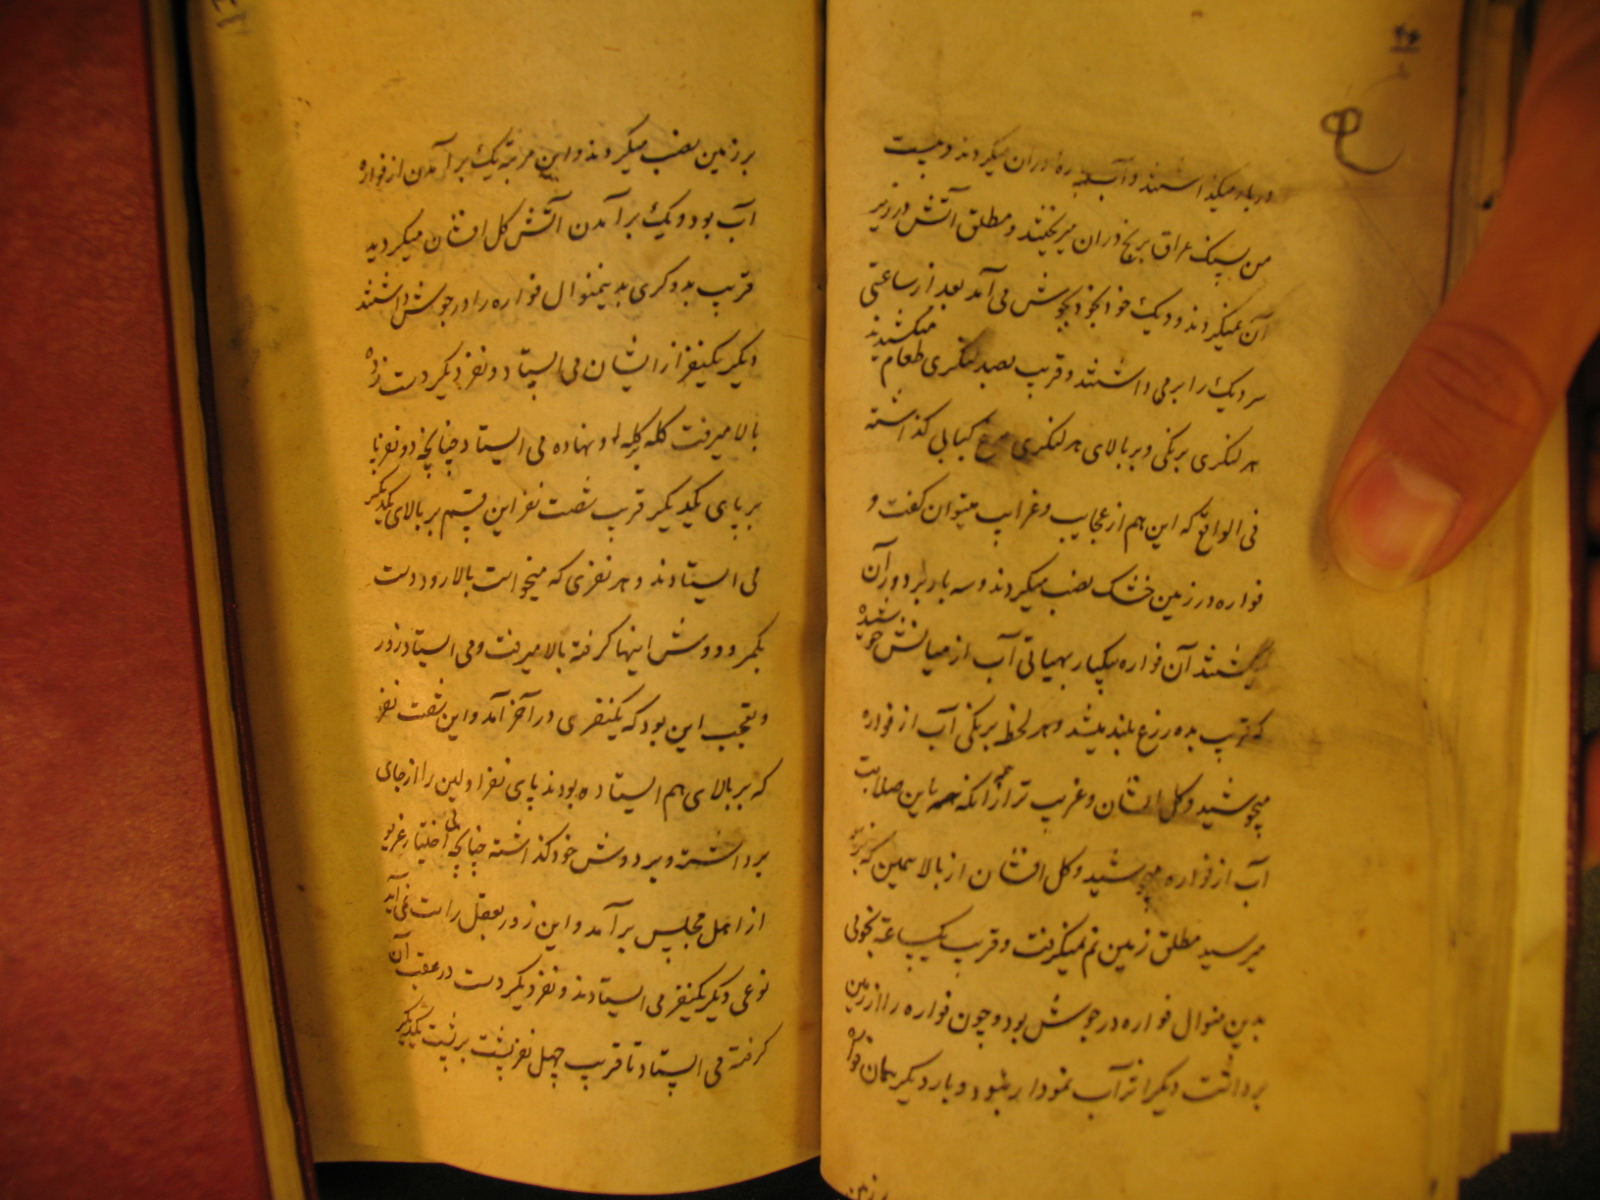 ۴۶
در بار میگذاشتند و آب دران میکردند و بیست
من بسنگ عراق برنج دران میریختند و مطلق آتش در زیر
آن نمیکردند و دیک خود بخود بجوش می آمد بعد از ساعتی
سر دیک را بر می داشتند و قریب بصد لنکری طعام میکشیدند
هر لنکری برنکی و بر بالای هر لنکری مرغ کبابی گذاشته
فی الواقع که این هم از عجایب و غرایب میتوان گفت و
فواره در زمین خشک نصب میکردند و سه بار بر دور آن
میکشتند آن فواره بیکبار بهیاتی آب از میانش جوشیده
که قریب بده زرع بلند میشد و هر لحظه برنکی آب از فواره
میجوشید و کل افشان و غریب تر از همه آنکه باین صلابت
آب از فواره میجوشید و کل افشان از بالا بهمین که بر
میرسید مطلق زمین نم نمیکرفت و قریب بیکساعة نجومی
بدین منوال فواره در جوش بود و چون فواره را از زمین
برداشت دیگر اثر آب نمودار نبود و بار دیگر همان فواره
بر زمین
بر زمین نصب میکردند و این مرتبه یک بر آمدن از فواره
آب بود و یک بر آمدن آتش کل افشان میکردید
قریب بدو کری بدینمنوال فواره را در جوش داشتند
دیگر یکنفر از ایشان می ایستاد و نفر دیگر دست زده
بالا میرفت کله بکله او نهاده می ایستاد چنانچه دو نفر پا
بر پای یکدیگر قریب شصت نفر این قسم بر بالای یکدیگر
می ایستادند و هر نفری که میخواست بالا رود دست
بکمر و دوش اینها کرفته بالا میرفت و می ایستاد زور
و تعجب این بود که یکنفری در آخر آمد و این شصت نفر
که بر بالای هم ایستاده بودند پای نفر اولین را از جای
برداشته و بر دوش خود گذاشته چنانچه بی اختیار غریو
از اهل مجلس بر آمد و این زور بعقل راست نمی آید
نوعی دیگر یکنفر می ایستادند و نفر دیگر دست در عقب آن
کرفته می ایستاد تا قریب چهل نفر پشت بر پشت یکدیگر